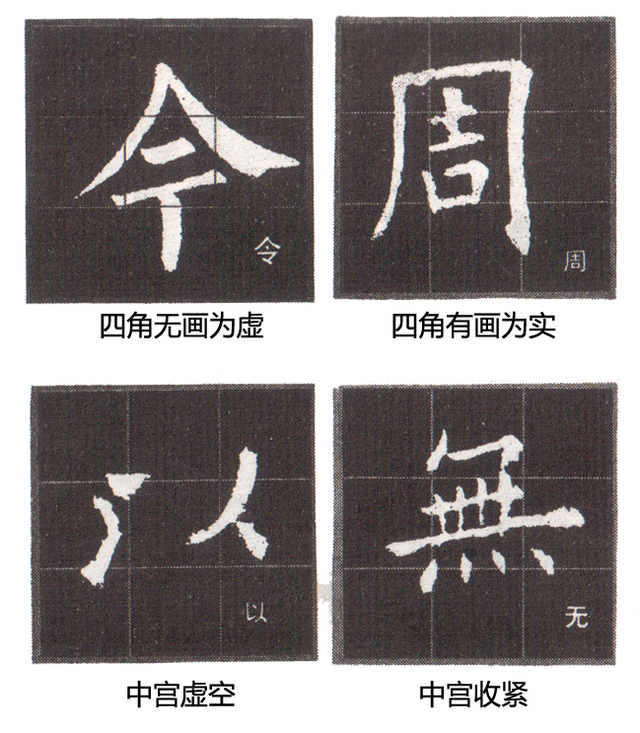 令 周
令 周
四角无画为虚 四角有画为实
以 無
以 无
中宫虚空 中宫收紧